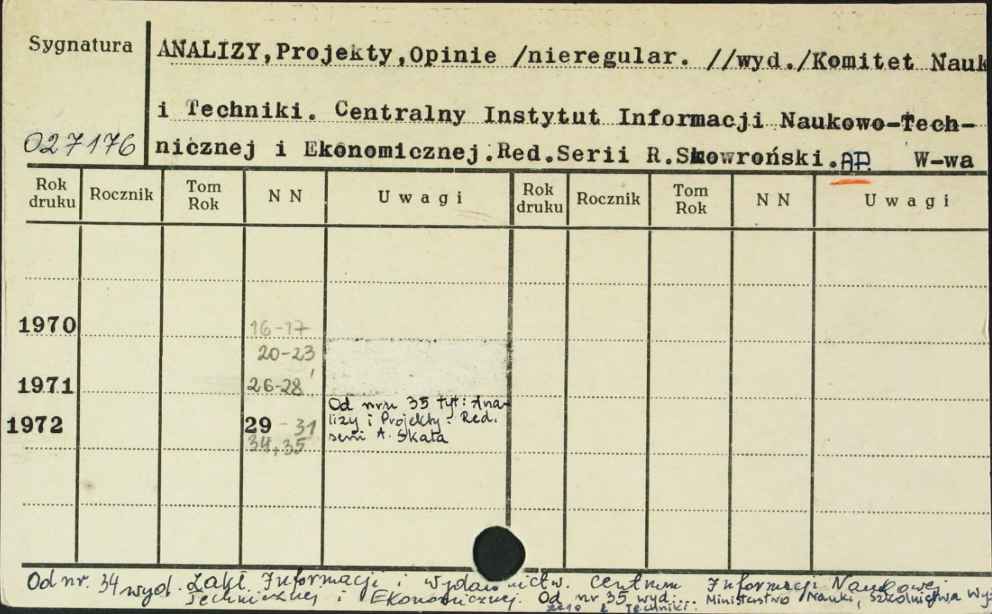 Sygnatura
ANALIZY,Projekty,Opinie /nieregular. //wyd./Komitet Nauk
i Techniki. Centralny Instytut Informacji Naukowo-Tech-
027176
nicznej i Ekonomicznej.Red.Serii R.Skowroński.AP. W-wa
Rok druku Rocznik Tom Rok N N Uwagi Rok druku Rocznik Tom Rok N N Uwagi
1970 16-17
20-23
1971 26-28
Od nru 35 tyt: Ana-
1972 29 - 31 lizy i Projekty. Red.
34,35 serii A. Skała
Od nr. 34 wyd. Zakł. Informacji i wydawnictw. Centrum Informacji Naukowej
Technicznej i Ekonomicznej. Od nr 35 wyd... Ministerstwo Nauki, Szkolnictwa Wyż
szego i Techniki.